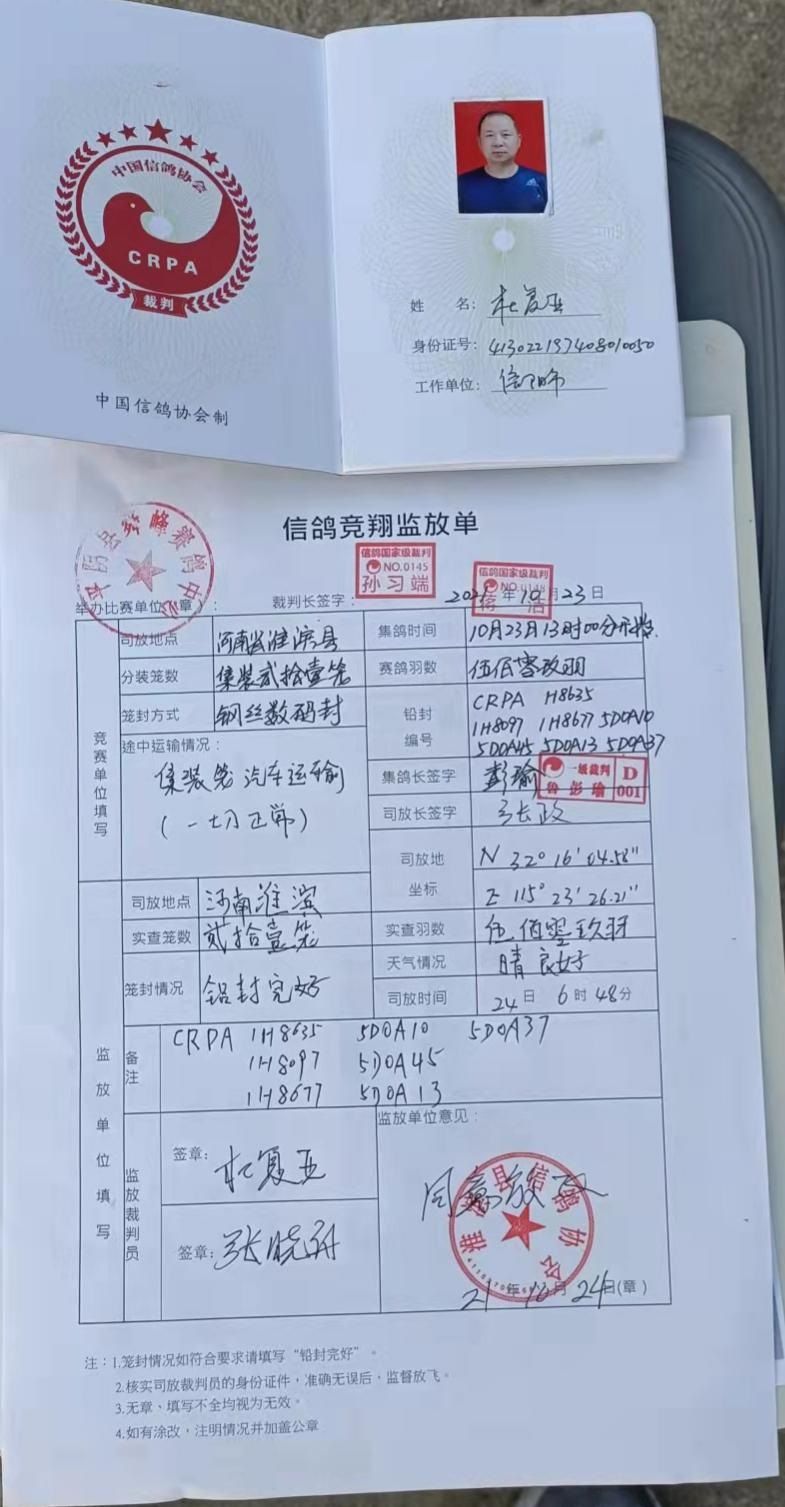 中国信鸽协会
CRPA
裁判
中国信鸽协会制
姓 名：杜夏亚
身份证号：
工作单位：
县 峰赛鸽中心
信鸽竞翔监放单
信鸽国家级裁判
NO.0145
孙习端
信鸽国家级裁判
举办比赛单位（章）： 裁判长签字： 2021年10月23日
竞赛单位填写
司放地点 河南省淮滨县 集鸽时间 10月23日13时00分开始
分装笼数 集装贰拾壹笼 赛鸽羽数 伍佰零玖羽
笼封方式 钢丝数码封 铅封编号 CRPA 1H8635
1H8097 1H8677 5D0A10
5D0A45 5D0A13 5D0A37
途中运输情况：
集装笼 汽车运输
（一切正常）
集鸽长签字 彭瑜
一级裁判 D
鲁彭瑜 001
司放长签字 张政
司放地坐标 N 32° 16' 04.58"
E 115° 23' 26.21"
监放单位填写
司放地点 河南淮滨
实查笼数 贰拾壹笼 实查羽数 伍佰零玖羽
笼封情况 铅封完好 天气情况 晴 良好
司放时间 24日 6时48分
备注
CRPA 1H8635 5D0A10 5D0A37
1H8097 5D0A45
1H8677 5D0A13
监放裁判员
签章：杜夏亚
签章：张晓
监放单位意见：
同意放飞
淮 县信鸽协会
21年10月24日(章)
注：1.笼封情况如符合要求请填写“铅封完好”。
2.核实司放裁判员的身份证件，准确无误后，监督放飞。
3.无章、填写不全均视为无效。
4.如有涂改，注明情况并加盖公章